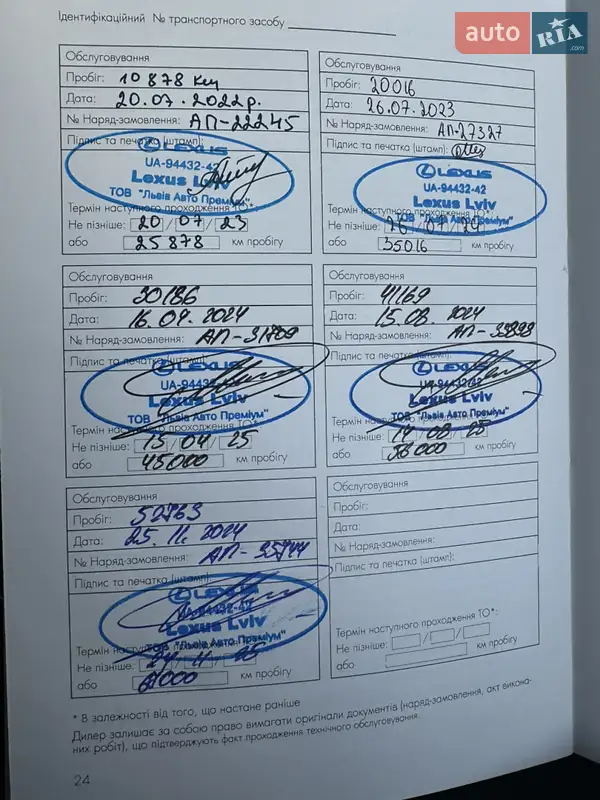 Ідентифікаційний № транспортного засобу
auto RIA .com
Обслуговування
Пробіг: 10 878 км
Дата: 20.07.2022р.
№ Наряд-замовлення: АП-22245
Підпис та печатка (штамп):
LEXUS
UA-94432-42
Lexus Lviv
ТОВ "Львів Авто Преміум"
Термін наступного проходження ТО*:
Не пізніше: 20/07/23
або 25 878 км пробігу
Обслуговування
Пробіг: 20016
Дата: 26.07.2023
№ Наряд-замовлення: АП-27327
Підпис та печатка (штамп):
LEXUS
UA-94432-42
Lexus Lviv
ТОВ "Львів Авто Преміум"
Термін наступного проходження ТО*:
Не пізніше: 26/07/24
або 35016 км пробігу
Обслуговування
Пробіг: 30186
Дата: 16.04.2024
№ Наряд-замовлення: АП-31709
Підпис та печатка (штамп):
LEXUS
UA-9443
Lexus Lviv
ТОВ "Львів Авто Преміум"
Термін наступного проходження ТО*:
Не пізніше: 15/04/25
або 45000 км пробігу
Обслуговування
Пробіг: 41169
Дата: 15.08.2024
№ Наряд-замовлення:
Підпис та печатка (штамп):
LEXUS
UA-94432-42
Lexus Lviv
ТОВ "Львів Авто Преміум"
Термін наступного проходження ТО*:
Не пізніше: 14/08/25
або 56000 км пробігу
Обслуговування
Пробіг: 52763
Дата: 25.11.2024
№ Наряд-замовлення: АП-35744
Підпис та печатка (штамп):
LEXUS
UA-94432-42
Lexus Lviv
ТОВ "Львів Авто Преміум"
Термін наступного проходження ТО*:
Не пізніше: 24/11/25
або км пробігу
Обслуговування
Пробіг:
Дата:
№ Наряд-замовлення:
Підпис та печатка (штамп):
Термін наступного проходження ТО*:
Не пізніше: / /
або км пробігу
* В залежності від того, що настане раніше
Дилер залишає за собою право вимагати оригінали документів (наряд-замовлення, акт викона-
них робіт), що підтверджують факт проходження технічного обслуговування.
24